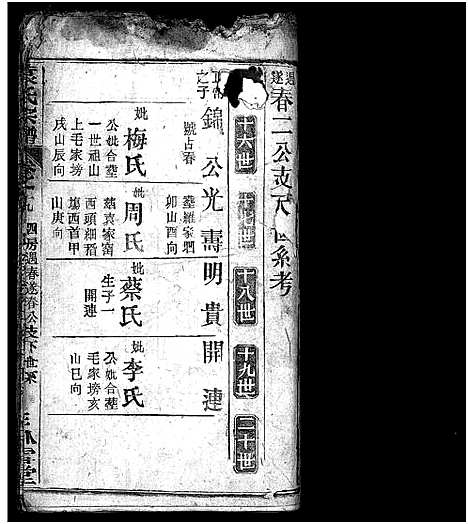 遇遂春二公支下世系考
十六世
十七世
十八世
十九世
二十世
之子
錦公
號占春
妣梅氏
公妣合塟
一世祖山
上毛家塝
戌山辰向
光壽
塟羅家垇
卯山酉向
妣周氏
塟袁家窑
西頭細稻
塲西首甲
山庚向
明貴
妣蔡氏
生子一
開連
開連
妣李氏
公妣合塟
毛家塝亥
山巳向
袁氏宗譜
四房遇春遂春公支下世系